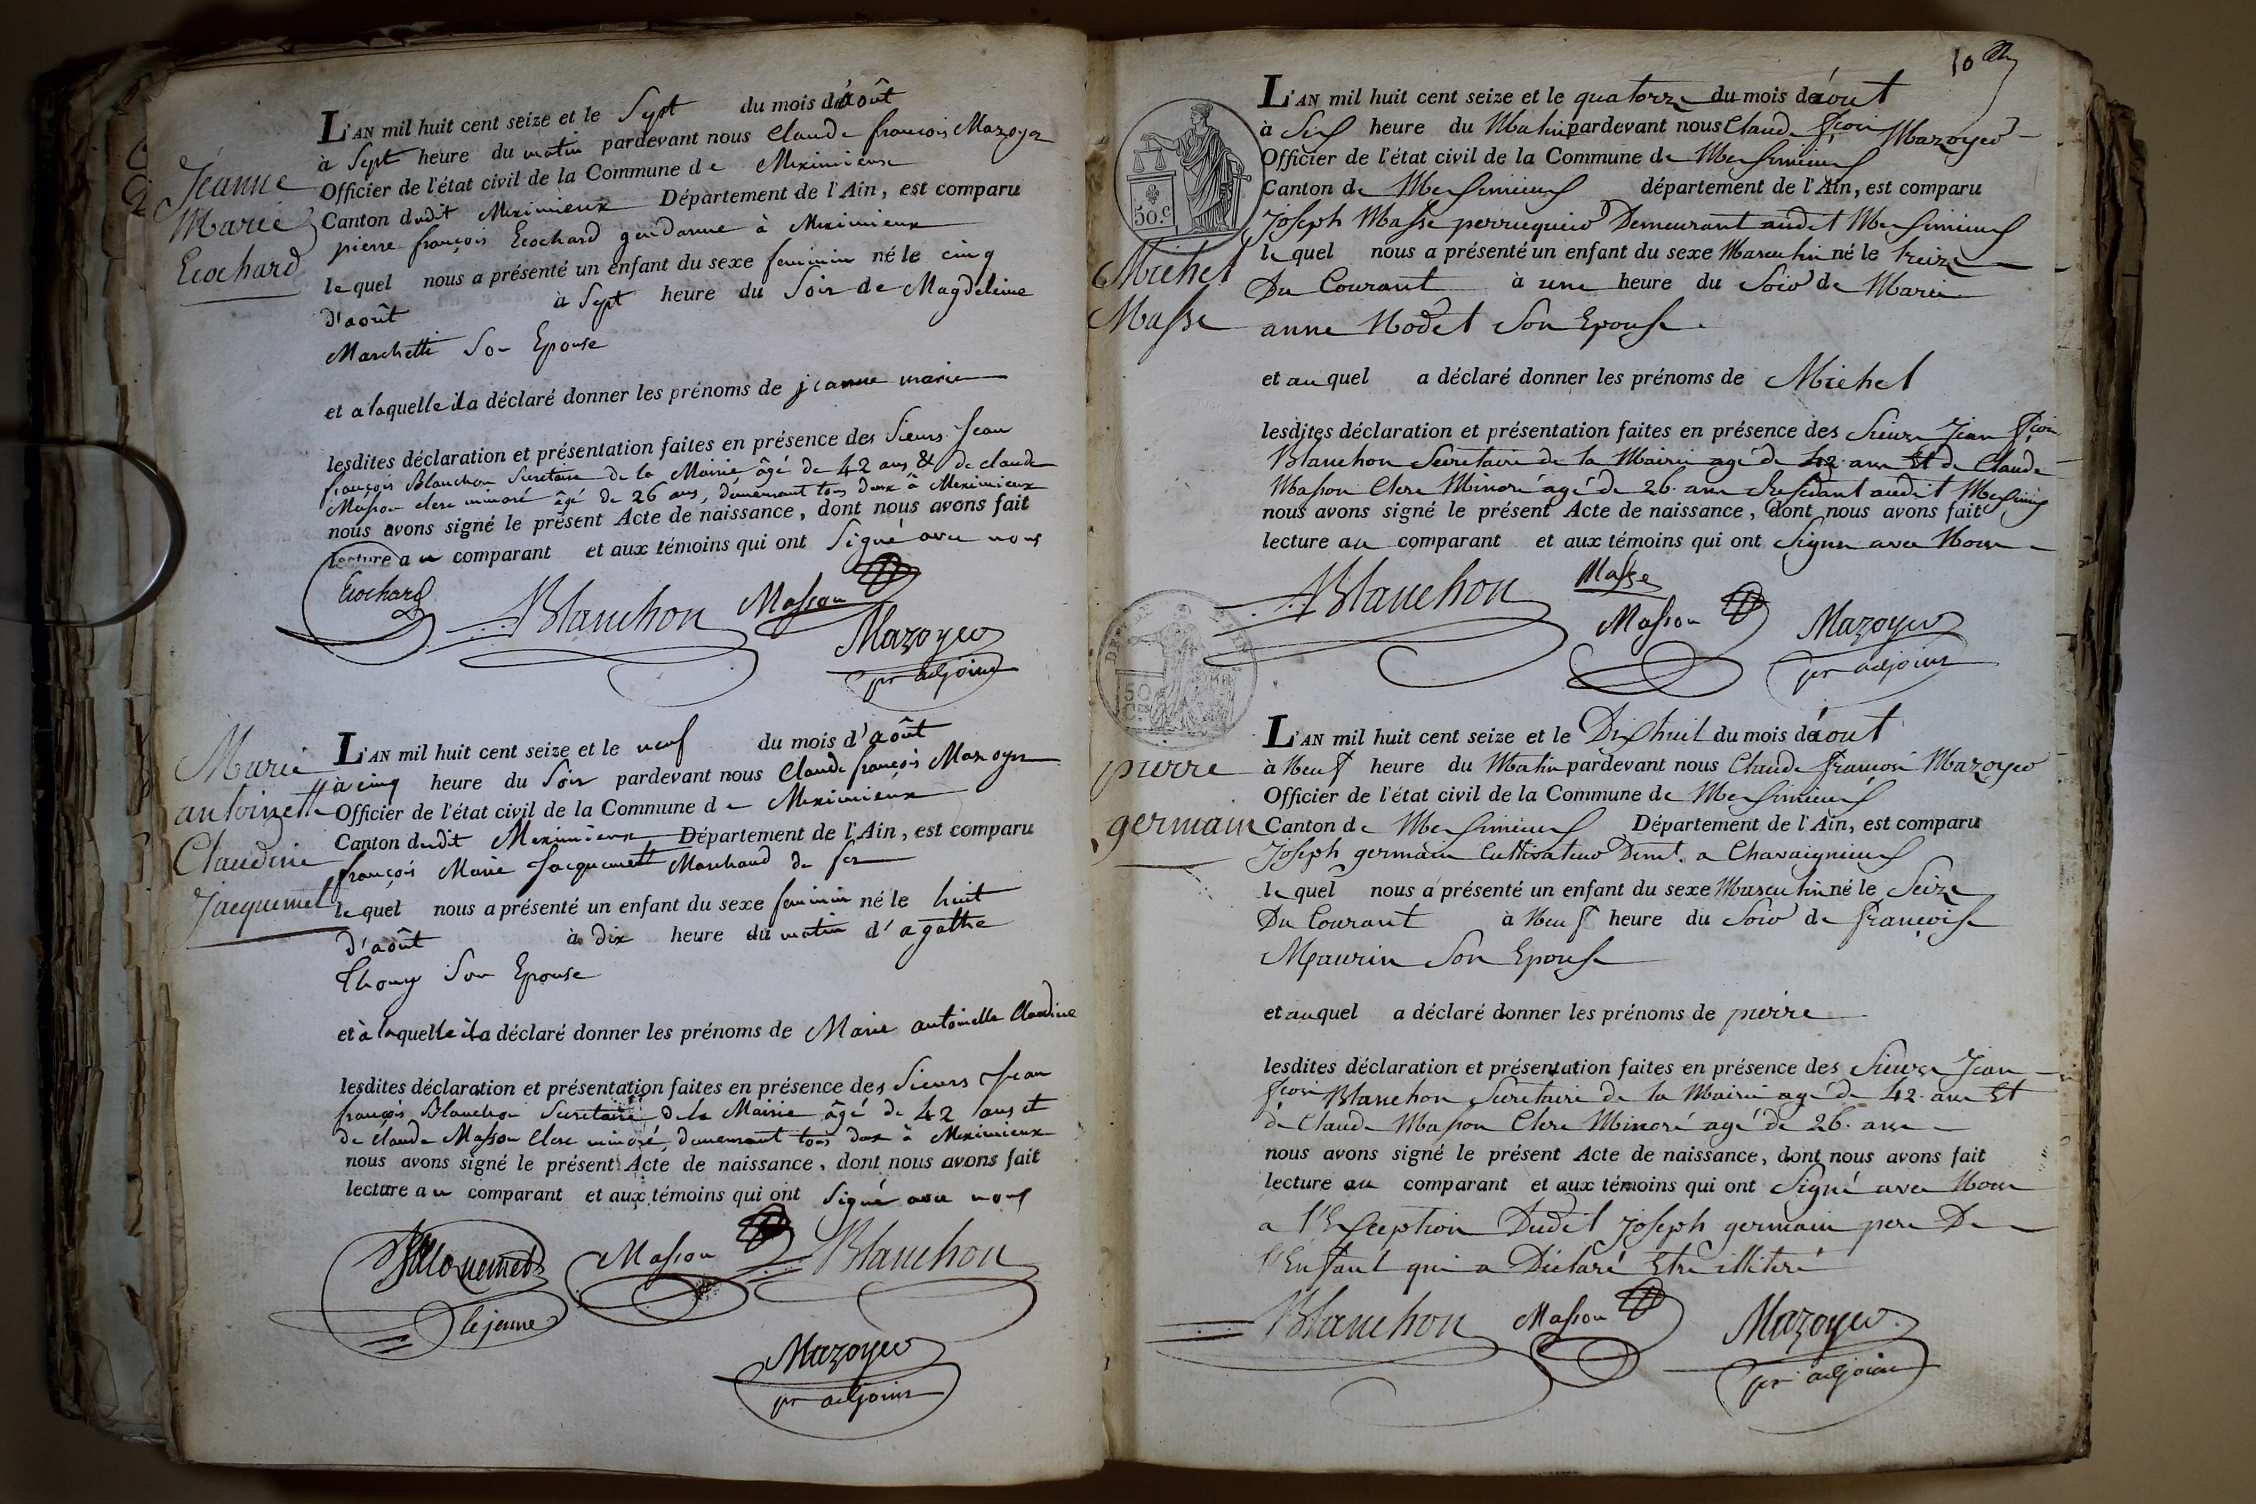 Jeanne
Marie
Ecochard
L'AN mil huit cent seize et le Sept du mois d'août
à Sept heure du matin pardevant nous Claude françois Mazoyer
Officier de l'état civil de la Commune de Meximieux
Canton dudit Meximieux Département de l'Ain, est comparu
pierre françois Ecochard gendarme à Meximieux
lequel nous a présenté un enfant du sexe feminin né le cinq
d'août à Sept heure du Soir de Magdeleine
Marchetti Son Epouse
et a laquelle il a déclaré donner les prénoms de jeanne marie
lesdites déclaration et présentation faites en présence des Sieurs Jean
françois Blanchon Secretaire de la Mairie âgé de 42 ans & de claude
Masson clerc minoré âgé de 26 ans, demeurant tous deux à Meximieux
nous avons signé le présent Acte de naissance, dont nous avons fait
lecture au comparant et aux témoins qui ont Signé avec nous
Ecochard Blanchon Masson
Mazoyer
pr adjoint
Marie
antoinette
Claudine
Jacquemet
L'AN mil huit cent seize et le neuf du mois d'août
à cinq heure du Soir pardevant nous Claude françois Mazoyer
Officier de l'état civil de la Commune de Meximieux
Canton dudit Meximieux Département de l'Ain, est comparu
françois Marie Jacquemett Marchand de fer
lequel nous a présenté un enfant du sexe feminin né le huit
d'août à dix heure du matin d'agathe
Thomy Son Epouse
et à laquelle il a déclaré donner les prénoms de Marie antoinette Claudine
lesdites déclaration et présentation faites en présence des Sieurs Jean
françois Blanchon Secretaire de la Mairie âgé de 42 ans et
de Claude Masson Clerc minoré demeurant tous deux à Meximieux
nous avons signé le présent Acte de naissance, dont nous avons fait
lecture au comparant et aux témoins qui ont Signé avec nous
Jacquemet Masson Blanchon
le jeune
Mazoyer
pr adjoint
10
Michel
Masse
L'AN mil huit cent seize et le quatorze du mois d'aout
à Six heure du Matin pardevant nous Claude fçois Mazoyer
Officier de l'état civil de la Commune de Meximieux
Canton de Meximieux département de l'Ain, est comparu
Joseph Masse perruquier Demeurant audit Meximieux
lequel nous a présenté un enfant du sexe Masculin né le treize
Du Courant à une heure du Soir de Marie
anne Nodet Son Epouse
et auquel a déclaré donner les prénoms de Michel
lesdites déclaration et présentation faites en présence des Sieurs Jean fçois
Blanchon Secretaire de la Mairie agé de 42 ans Et de Claude
Masson Clerc Minoré agé de 26 ans Residant audit Meximieux
nous avons signé le présent Acte de naissance, dont nous avons fait
lecture au comparant et aux témoins qui ont Signé avec Nous
Blanchon Masse
Masson Mazoyer
pr adjoint
50.c
50
Ces
pierre
germain
L'AN mil huit cent seize et le Dixhuit du mois d'aout
à Neuf heure du Matin pardevant nous Claude françois Mazoyer
Officier de l'état civil de la Commune de Meximieux
Canton de Meximieux Département de l'Ain, est comparu
Joseph germain Cultivateur Demt. a Chavaignieux
lequel nous a présenté un enfant du sexe Masculin né le Seize
Du Courant à Neuf heure du Soir de françoise
Maurin Son Epouse
et auquel a déclaré donner les prénoms de pierre
lesdites déclaration et présentation faites en présence des Sieurs Jean
fçois Blanchon Secretaire de la Mairie agé de 42 ans Et
de Claude Masson Clerc Minoré agé de 26 ans
nous avons signé le présent Acte de naissance, dont nous avons fait
lecture au comparant et aux témoins qui ont Signé avec Nous
a l'Exception Dudit Joseph germain pere De
l'Enfant qui a Déclaré Etre illiteré
Blanchon Masson Mazoyer
pr adjoint